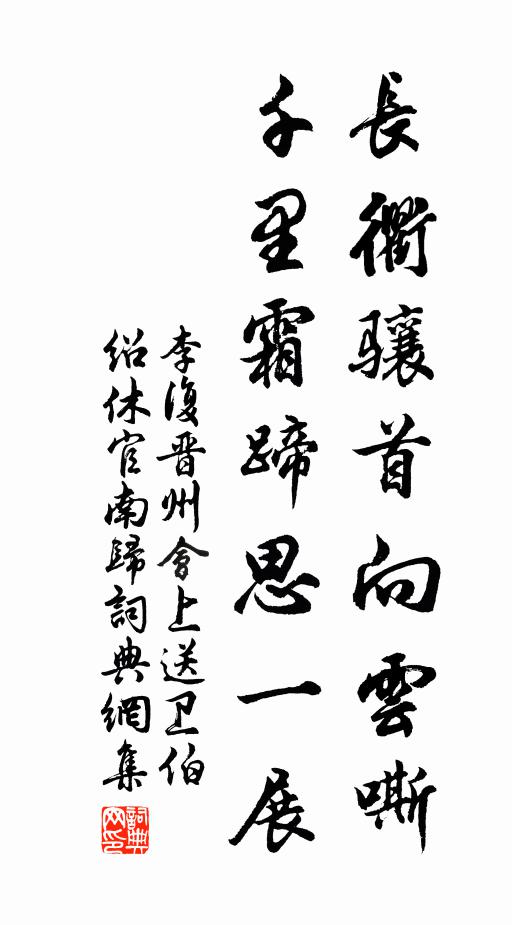 長衢骧首向雲嘶
千里霜蹄思一展
李復晋州會上送卫伯
绍休官南歸詞典網集
詞典
网印